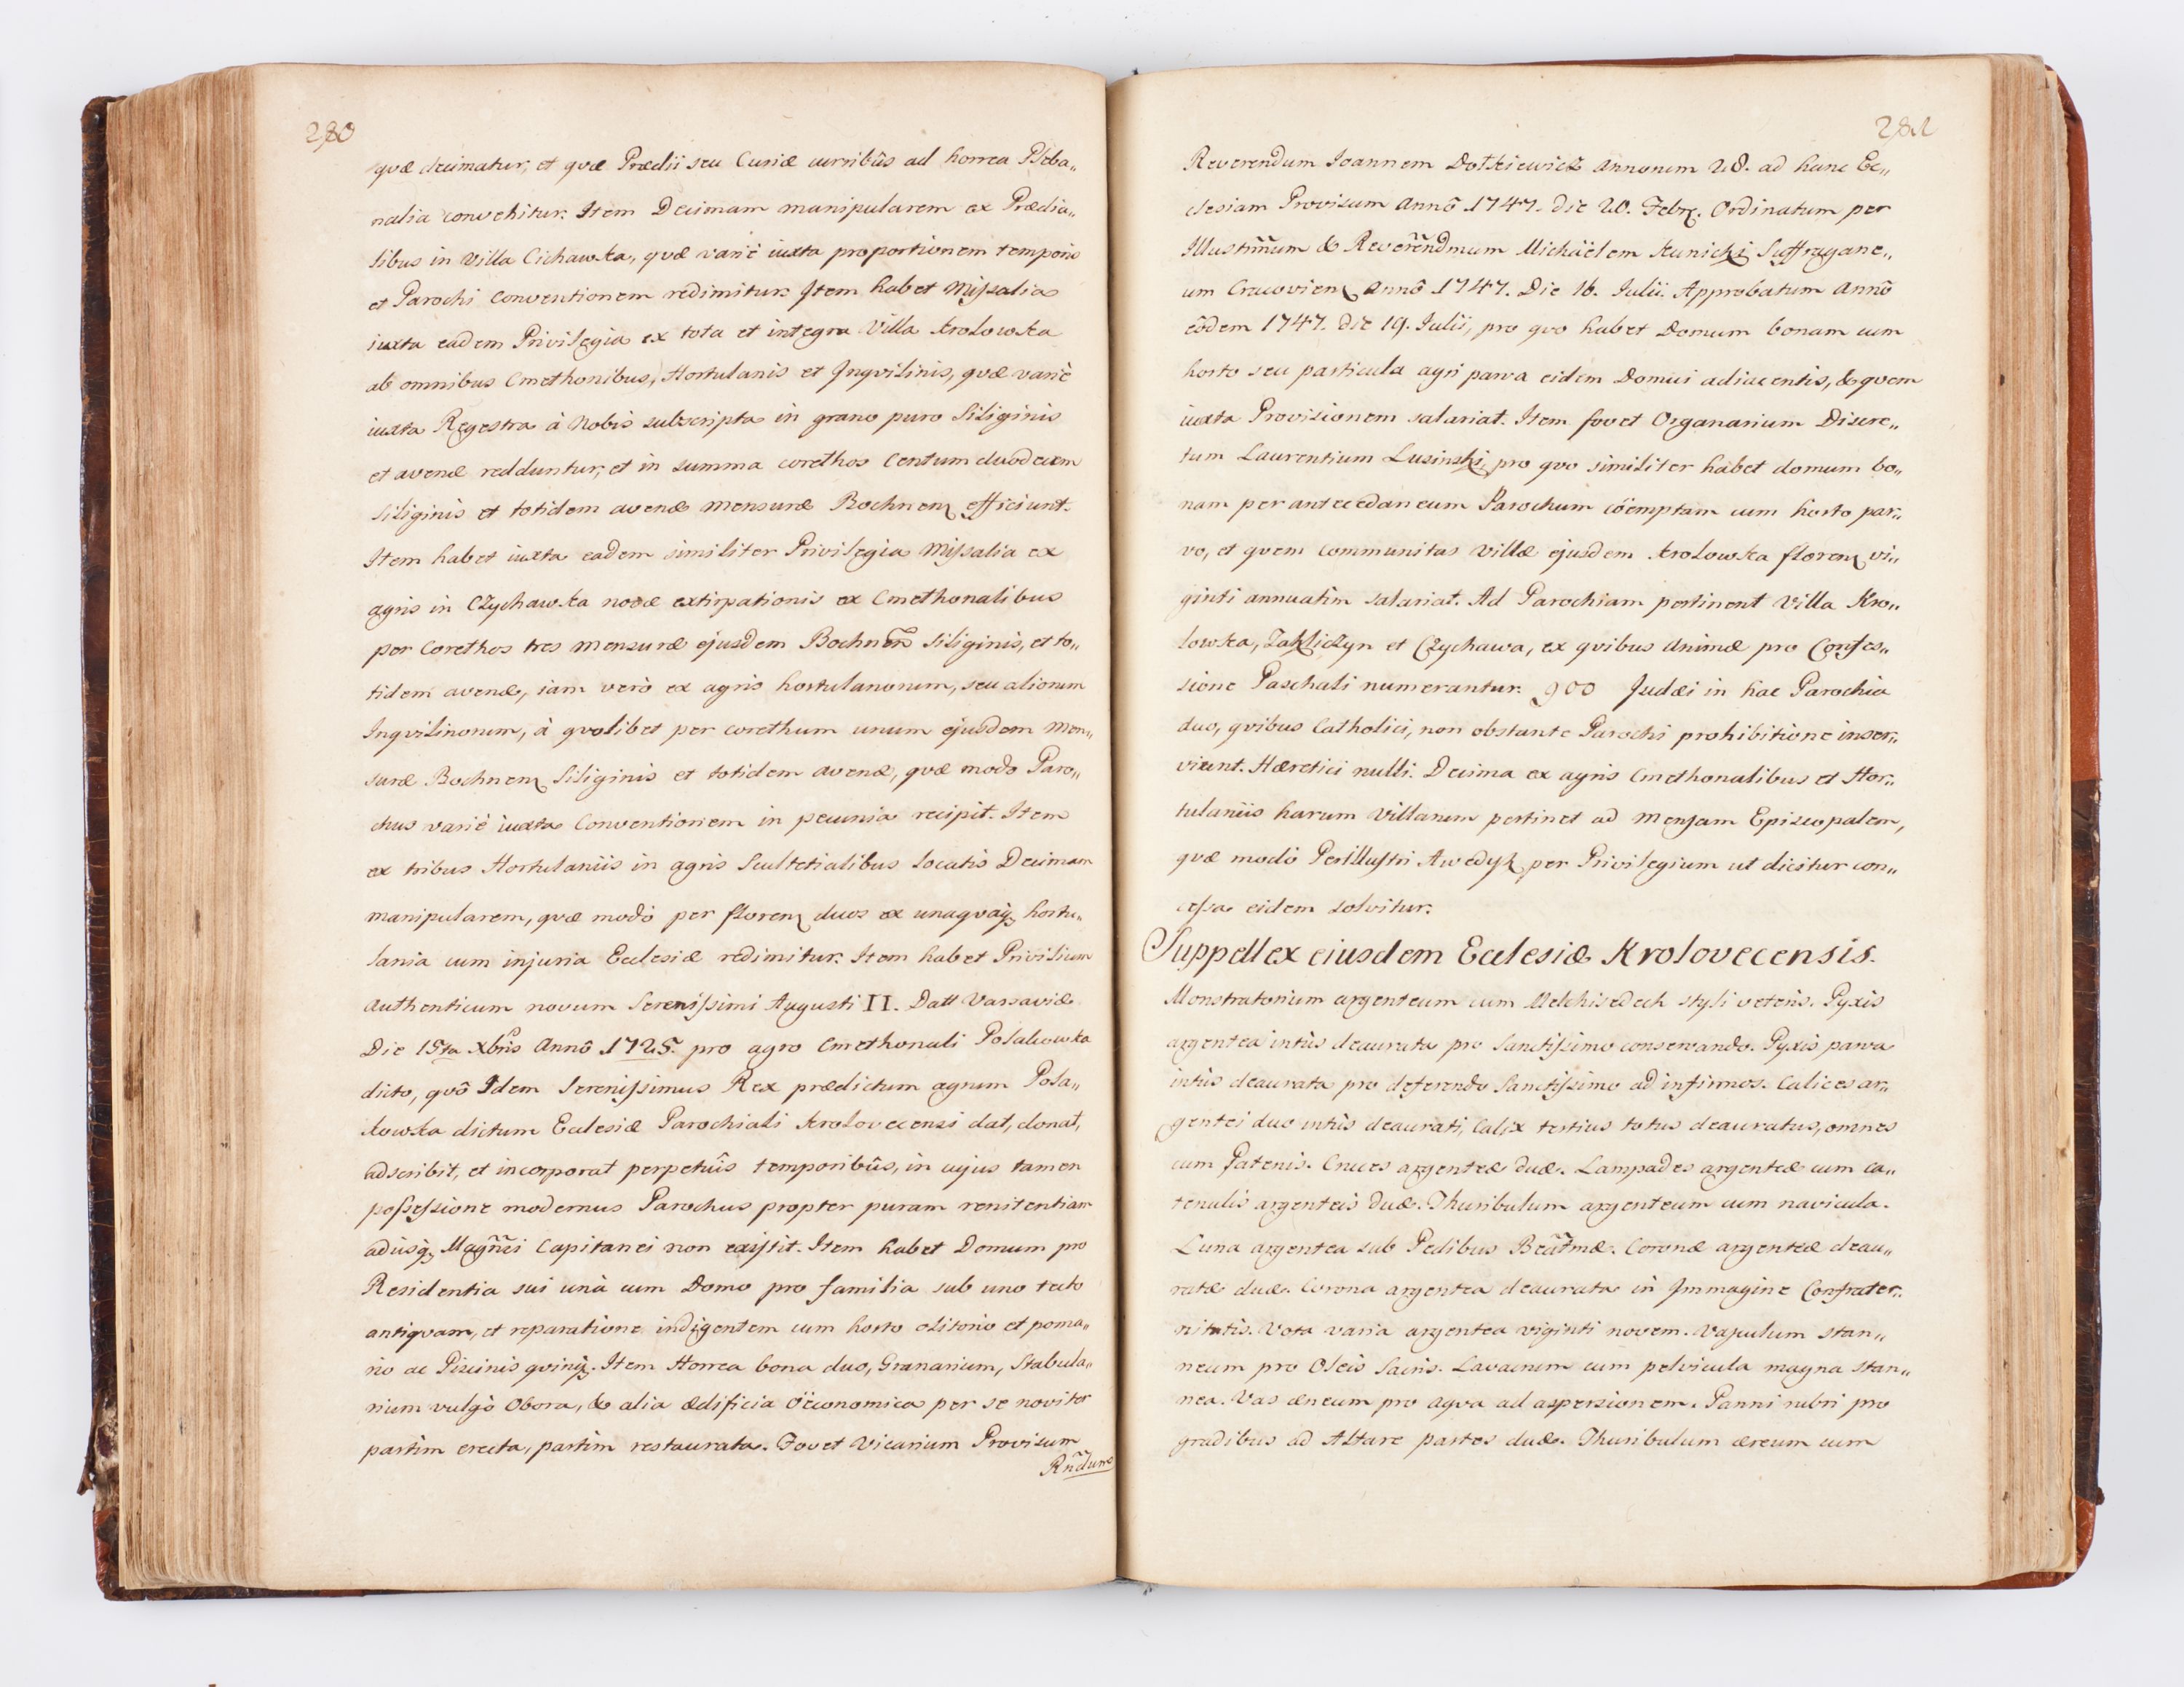 280
quæ decimatur, et quæ Prædii seu Curiæ curribûs ad horrea Pleba„
nalia convehitur. Item Decimam manipularem ex Prædia„
libus in Villa Cichawka, quæ variè iuxta proportionem temporis
et Parochi Conventionem redimitur. Item habet Missalia
iuxta eadem Privilegia ex tota et integra Villa Krolowka
ab omnibus Cmethonibus, Hortulanis et Inqvilinis, quæ variè
iuxta Regestra à Nobis subscripta in grano puro Siliginis
et avenæ redduntur, et in summa corethos Centum duodecim
Siliginis et totidem avenæ mensuræ Bochnen efficiunt.
Item habet iuxta eadem similiter Privilegia Missalia ex
agris in Czychawka novæ extirpationis ex Cmethonalibus
per Corethos tres mensuræ ejusdem Bochnen Siliginis, et to„
tidem avenæ, iam verò ex agris hortulanorum, seu aliorum
Inqvilinorum, à qvolibet per corethum unum ejusdem Men„
suræ Bochnen Siliginis et totidem avenæ, quæ modo Paro„
chus variè iuxta Conventionem in pecunia recipit. Item
ex tribus Hortulaniis in agris Scultetialibus locatis Decimam
manipularem, quæ modò per floren duos ex unaqvaq hortu„
lania cum injuria Ecclesiæ redimitur. Item habet Privilium
Authenticum novum Serenissimi Augusti II. Datt Varsaviæ
Die 15ta Xbris Annô 1725. pro agro Cmethonali Polakowka
dicto, quô Idem Serenissimus Rex prædictum agrum Pola„
kowka dictum Ecclesiæ Parochiali Krolovecensi dat, donat,
adscribit, et incorporat perpetuîs temporibûs, in cujus tamen
possessione modernus Parochus propter puram renitentiam
adusq Magñei Capitanei non existit. Item habet Domum pro
Residentia sui unà cum Domo pro familia sub uno tecto
antiqvam, et reparatione indigentem cum horto olitorio et poma„
rio ac Piscinis qvinq. Item Horrea bona duo, Granarium, Stabula„
rium vulgò Obora, & alia ædificia oeconomica per se noviter
partim erecta, partim restaurata. Fovet Vicarium Provisum
Rñdum
281
Reverendum Ioannem Dotkiewicz Annorum 28. ad hanc Ec„
clesiam Provisum Annô 1747. die 20. Febr. Ordinatum per
Illustrm̃um & Reverendmum Michäelem Kunicki Suffragane„
um Cracovien Annô 1747. Die 16. Iulii. Approbatum Annô
eôdem 1747. die 19. Iulii, pro quo habet Domum bonam cum
horto seu particula agri parva eidem Domui adiacentis, & quem
iuxta Provisionem salariat. Item fovet Organarium Discre„
tum Laurentium Lusinski, pro quo similiter habet domum bo„
nam per antecedaneum Parochum coemptam cum horto par„
vo, et quem Communitas Villæ ejusdem Krolowka floren vi„
ginti annuatim salariat. Ad Parochiam pertinent Villa Kro„
lowka, Zakliczyn et Czychawa, ex quibus Animæ pro Confes„
sione Paschali numerantur. 900 Judæi in hac Parochia
duo, quibus Catholici, non obstante Parochi prohibitione inser„
viunt. Hæretici nulli. Decima ex agris Cmethonalibus et Hor„
tulaniis harum Villarum pertinet ad Mensam Episcopalem,
quæ modò Perillustri Awedyk per Privilegium ut dicitur con„
cessa eidem solvitur.
Suppellex eiusdem Ecclesiæ Krolovecensis.
Monstratorium argenteum cum Melchisedech styli veteris. Pyxis
argentea intùs deaurata pro Sanctissimo conservando. Pyxis parva
intùs deaurata pro deferendo Sanctissimo ad infirmos. Calices ar„
gentei duo intùs deaurati, Calix tertius totus deauratus, omnes
cum Patenis. Cruces argenteæ duæ. Lampades argenteæ cum ca„
tenulis argenteis duæ. Thuribulum argenteum cum navicula.
Luna argentea sub Pedibus Beatmæ. Coronæ argenteæ deau„
ratæ duæ. Corona argentea deaurata in Immagine Confrater„
nitatis. Vota varia argentea viginti novem. Vasculum stan„
neum pro Oleis Sacris. Lavacrum cum pelvicula magna stan„
nea. Vas æneum pro aqva ad aspersionem. Panni rubri pro
gradibus ad Altare partes duæ. Thuribulum æreum cum